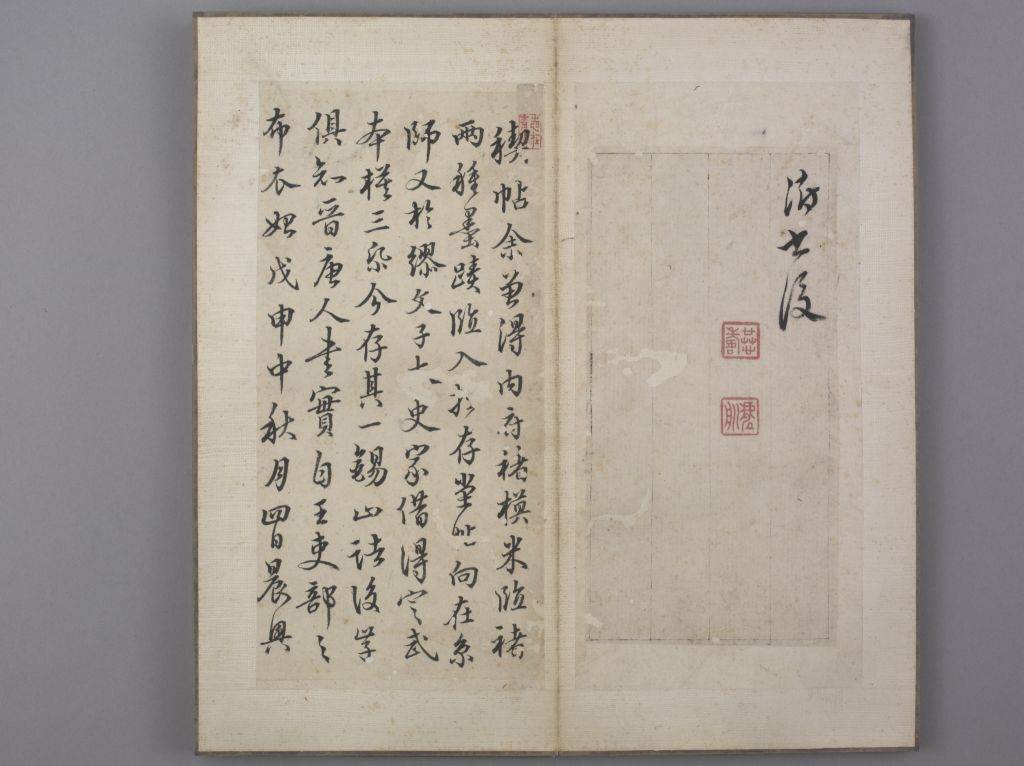 後
稧帖余曾得内府褚模米臨褚
兩種墨蹟臨入存堂帖向在京
師又於繆文子太史家借得定武
本模三今存其一錫山諸後学
俱知晋唐人書實自王吏部之
布衣始戊申中秋月四日晨興